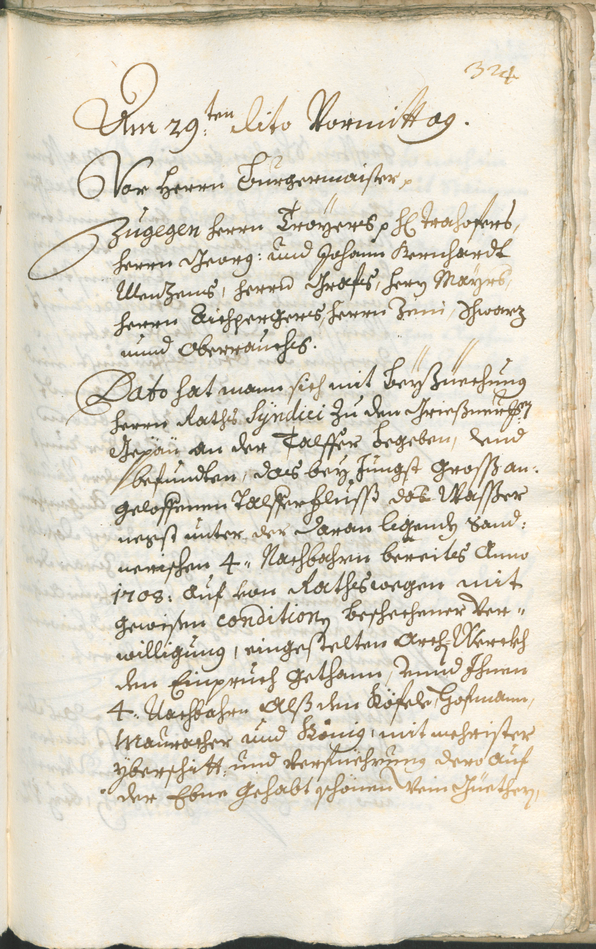 324
Am 29.ten dito Vormittag.
Vor Herrn Burgermaister
Zugegen herrn Troyers, H: trahofers,
herrn Georg: und Johann Bernhardt
Wenzens, herrn Grafs, herrn Mayrs,
herrn Aichpergers, herrn Zeni, Schwarz
unnd Oberrauchs.
Dato hat mann sich mit Beyß
herrn Raths Syndici zu den
Gepäu an der Talffer begeben, und
befundten, das bey jüngst grosß an:
geloffenen Talfferflusß das Wasßer
negst unter der daran ligendt Sand:
nerischen 4. Nachbahrn bereits Anno
1708: auf von Rathswegen mit
gewisen conditionen beschechener Ver-
willigung, eingestelten Arch Werckh
den Einpruch gethann, unnd Ihnen
4. Nachbahrn Alß den Köfele, Hofmann,
Mauracher und König, mit mehrister
yberschitt: und verfuehrung dero auf
der Ebne gehabt schönen Wein Güether,